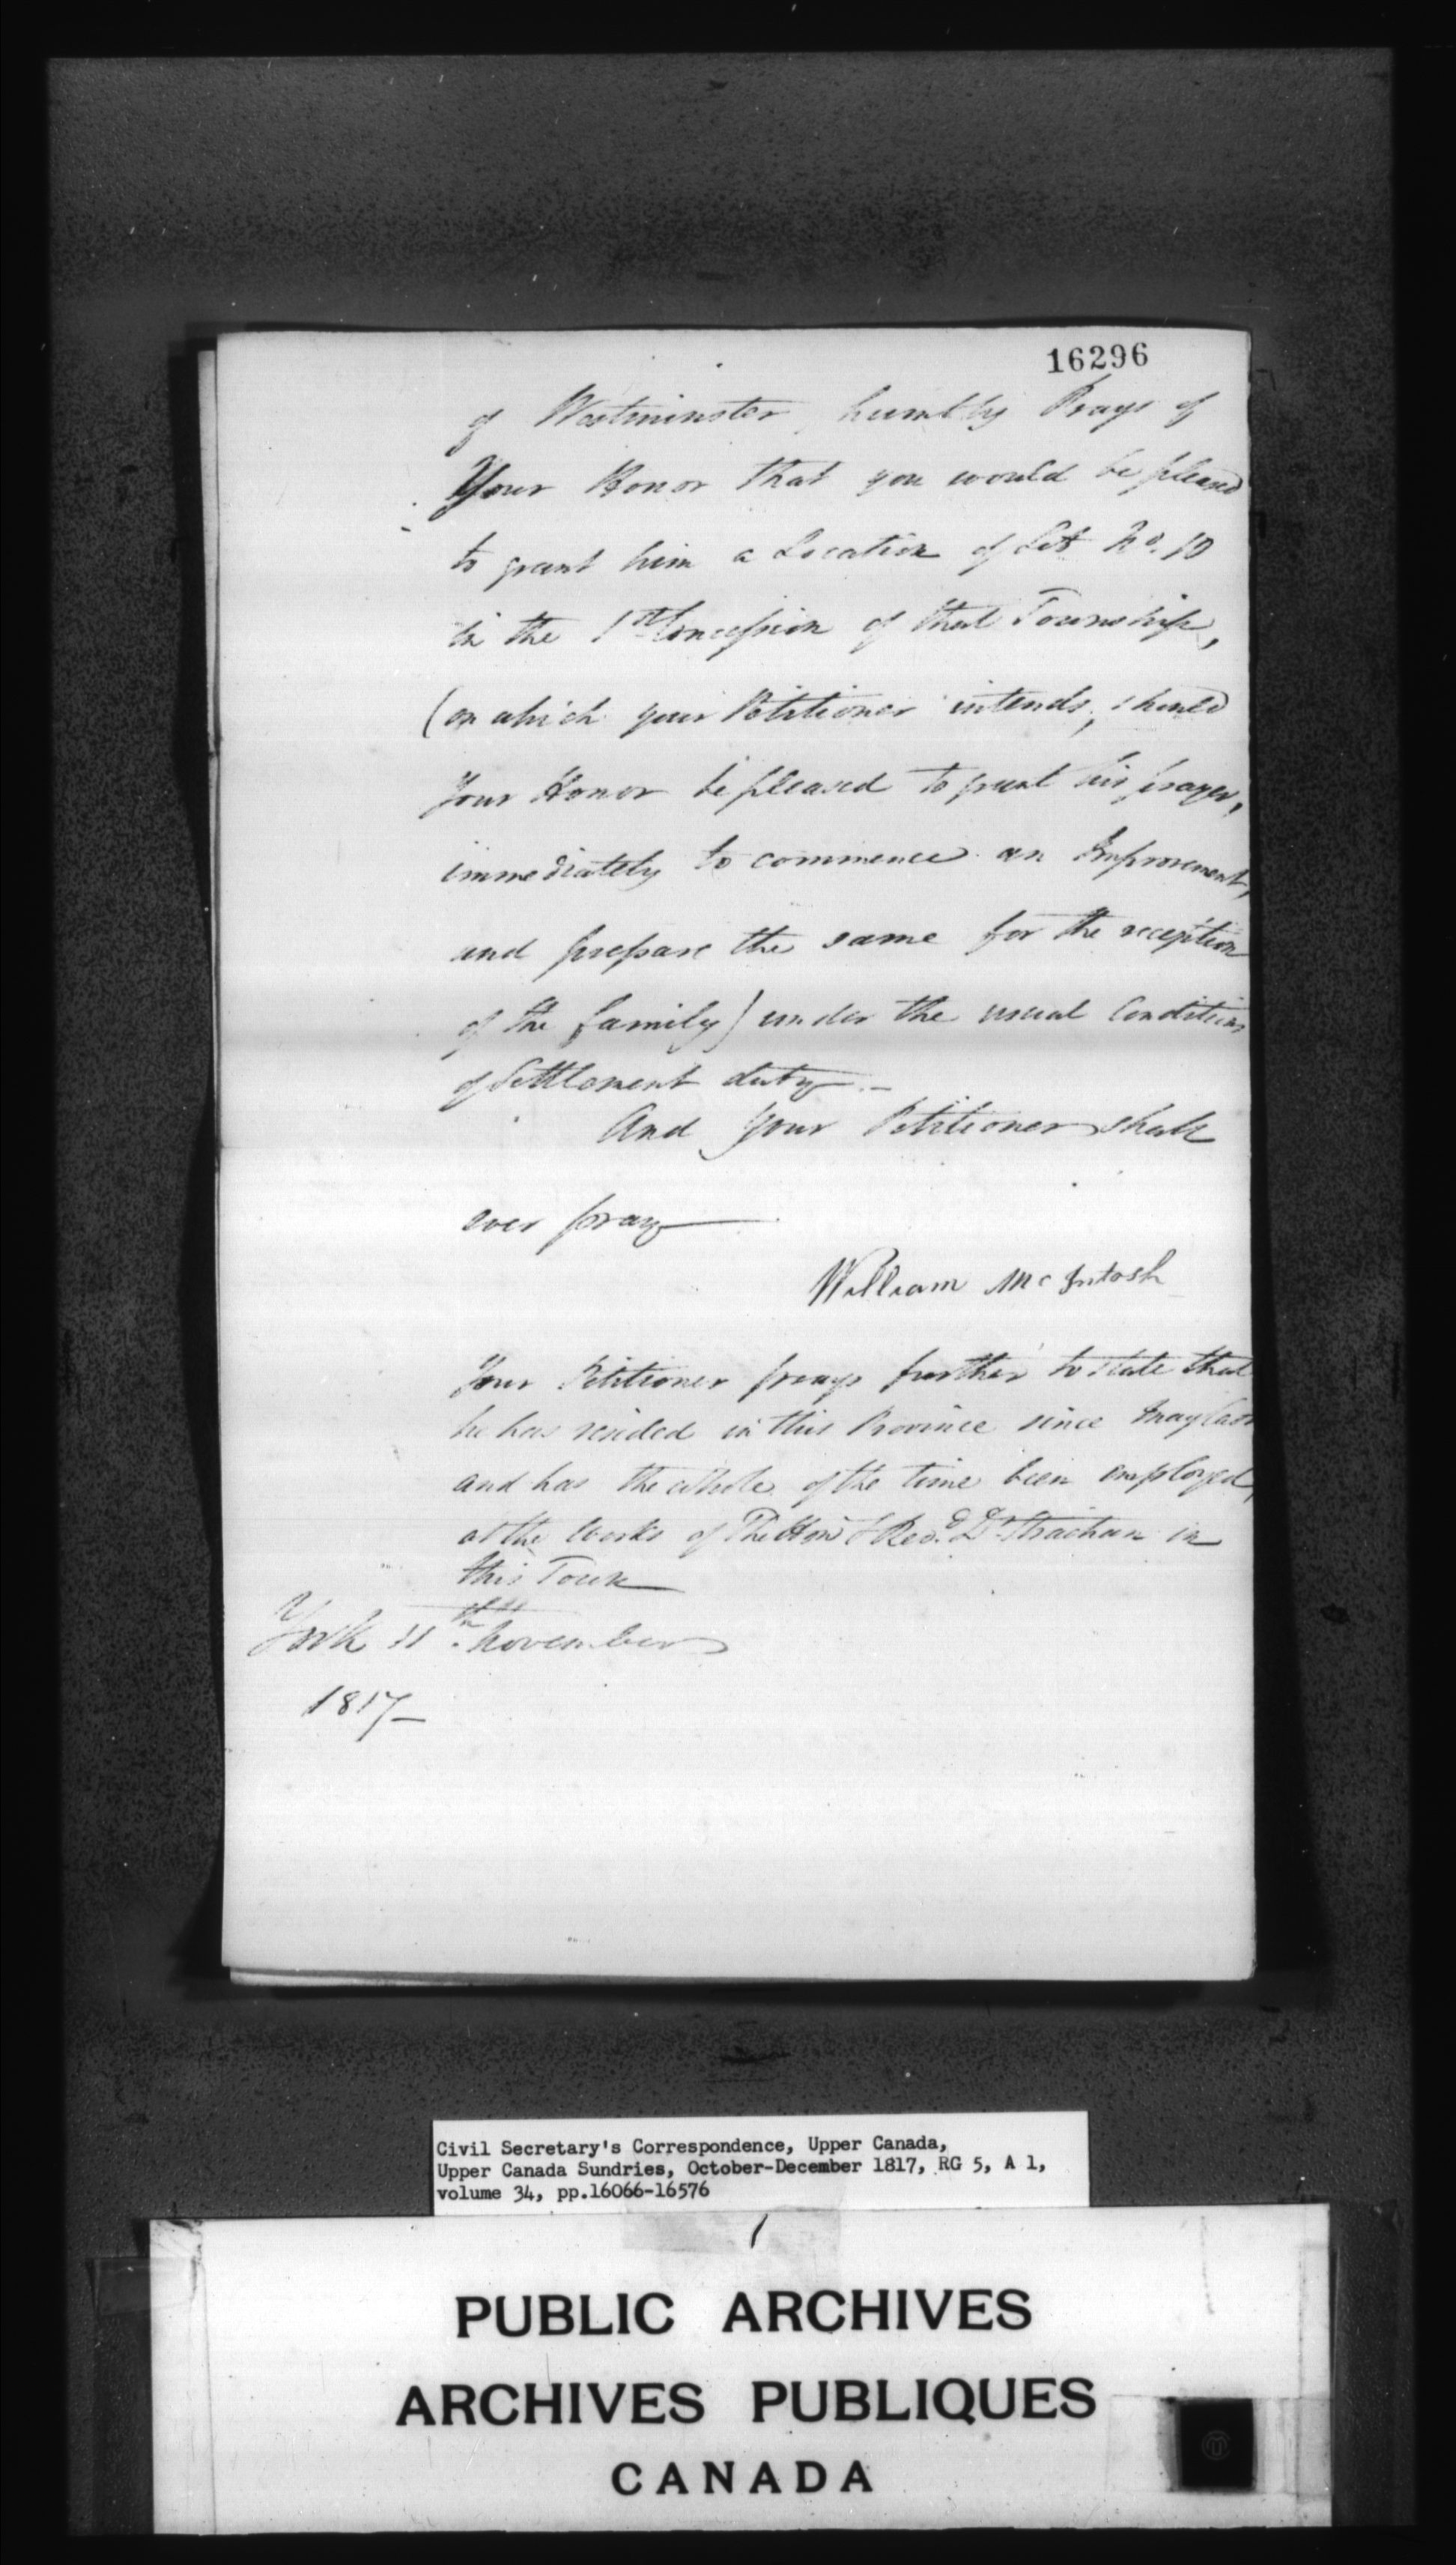 16296
of Westminster, humbly Prays of
Your Honor that you would be pleased
to grant him a Location of Lot No. 10
in the 1st Concession of that Township,
(on which your Petitioner intends, should
Your Honor be pleased to grant his prayer,
immediately to commence an Improvement,
and prepare the same for the reception
of the family) under the usual Conditions
of Settlement duty.—
And Your Petitioner shall
ever pray—
William McIntosh
Your Petitioner prays further to state that
he has resided in this Province since May last
and has the whole of the time been employed,
at the works of The Honl & Revd. Dr Strachan in
this Town—
York 11th November
1817—
Civil Secretary's Correspondence, Upper Canada,
Upper Canada Sundries, October-December 1817, RG 5, A 1,
volume 34, pp.16066-16576
PUBLIC ARCHIVES
ARCHIVES PUBLIQUES
CANADA